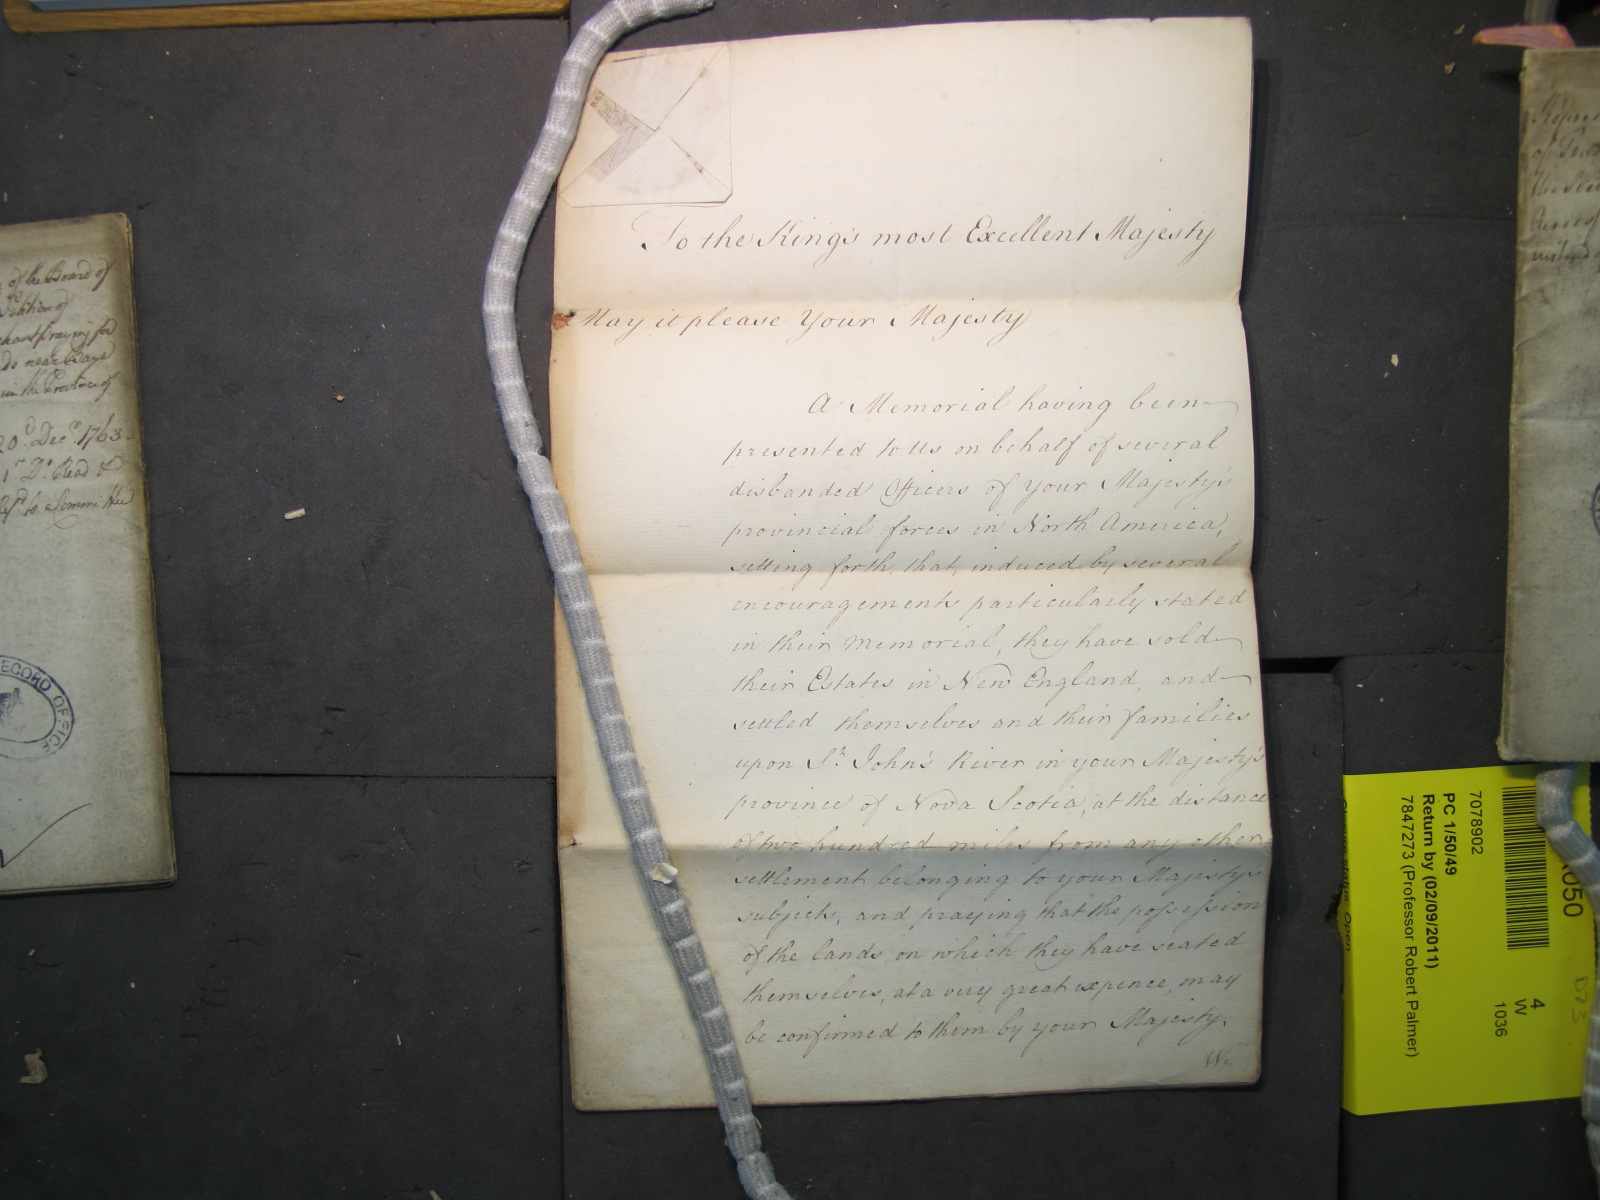 To the King's most Excellent Majesty
May it please Your Majesty
A Memorial having been
presented to Us on behalf of several
disbanded Officers of your Majesty's
provincial forces in North America,
setting forth, that, induced by several
encouragements particularly stated
in their Memorial, they have sold
their Estates in New England, and
settled themselves and their families
upon St. John's River in your Majesty's
province of Nova Scotia, at the distance
of two hundred miles from any other
settlement belonging to your Majesty's
subjects, and praying that the possession
of the lands, on which they have seated
themselves, at a very great expence, may
be confirmed to them by your Majesty.
We
of the Board of
Petition of
praying for
near Baye
in the Province of
20th. Decr. 1763.
Read &
to a Committee
RECORD OFFICE
7078902
PC 1/50/49
Return by (02/09/2011)
7847273 (Professor Robert Palmer)
4
W
1036
Open
D23